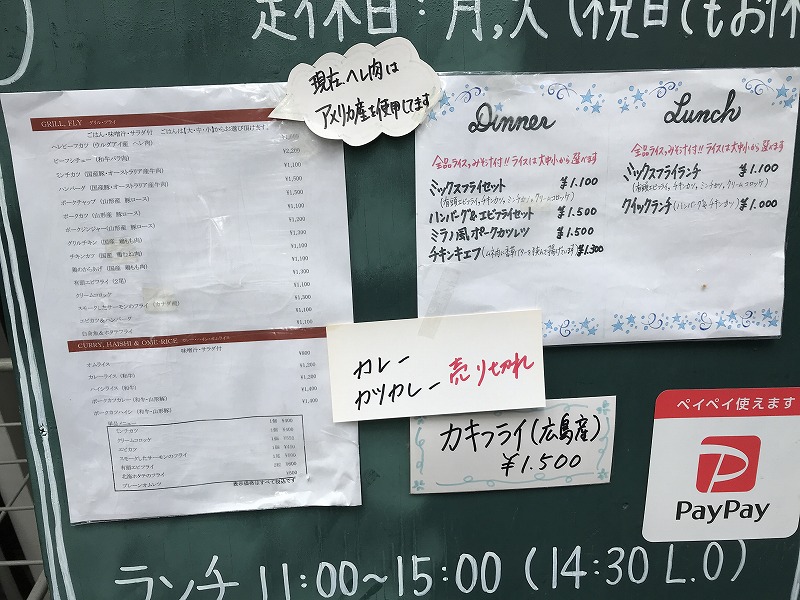 定休日：月,火(祝日でもお休
現在、ヘレ肉は
アメリカ産を使用してます
GRILL, FLY グリル・フライ
ごはん・味噌汁・サラダ付 ごはんは【大・中・小】からお選び頂けます
ヘレビーフカツ（ウルグアイ産 ヘレ肉）
ビーフシチュー（和牛バラ肉） ¥2,200
ミンチカツ（国産豚・オーストラリア産牛肉） ¥1,100
ハンバーグ（国産豚・オーストラリア産牛肉） ¥1,500
ポークチャップ（山形産 豚ロース） ¥1,500
ポークカツ（山形産 豚ロース）
ポークジンジャー（山形産 豚ロース）
グリルチキン（国産 鶏もも肉）
チキンカツ（国産 鶏むね肉）
鶏のからあげ（国産 鶏もも肉）
有頭エビフライ（2尾）
クリームコロッケ
スモークしたサーモンのフライ（カナダ産）
エビカツ＆ハンバーグ
白身魚＆ホタテフライ
CURRY, HAISHI & OME RICE カレー・ハイシ・オムライス
味噌汁・サラダ付
オムライス ¥800
カレーライス（和牛） ¥1,200
ハイシライス（和牛） ¥1,200
ポークカツカレー（和牛・山形豚） ¥1,400
ポークカツハイシ（和牛・山形豚） ¥1,400
単品メニュー
ミンチカツ 1個 ¥400
クリームコロッケ 1個 ¥350
エビカツ 1個
スモークしたサーモンのフライ
有頭エビフライ
北海ホタテのフライ
プレーンオムレツ
表示価格はすべて税込です
Dinner
全品ライス、みそ汁付!! ライスは大中小から選べます
ミックスフライセット ¥1.100
(有頭エビフライ、チキンカツ、ミンチカツ、クリームコロッケ)
ハンバーグ&エビフライセット ¥1.500
ミラノ風ポークカツレツ ¥1.500
チキンキエフ ¥1.300
Lunch
全品ライス、みそ汁付!! ライスは大中小から選べます
ミックスフライランチ ¥1.100
(有頭エビフライ、チキンカツ、ミンチカツ、クリームコロッケ)
クイックランチ(ハンバーグ&チキンカツ) ¥1.000
カレー
カツカレー 売り切れ
カキフライ(広島産)
¥1.500
ペイペイ使えます
PayPay
ランチ 11:00~15:00 (14:30 L.O)